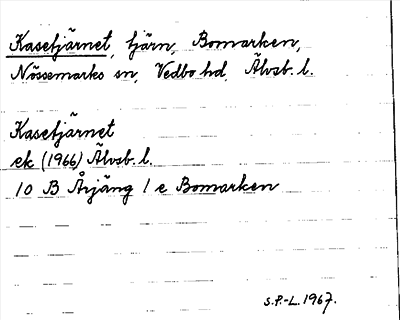 Kasetjärnet, tjärn, Bomarken,
Nössemarks sn, Vedbo hd, Älvsb. l.
Kasetjärnet
ek (1966) Älvsb. l.
10 B Årjäng 1 e Bomarken
S.P.-L. 1967.